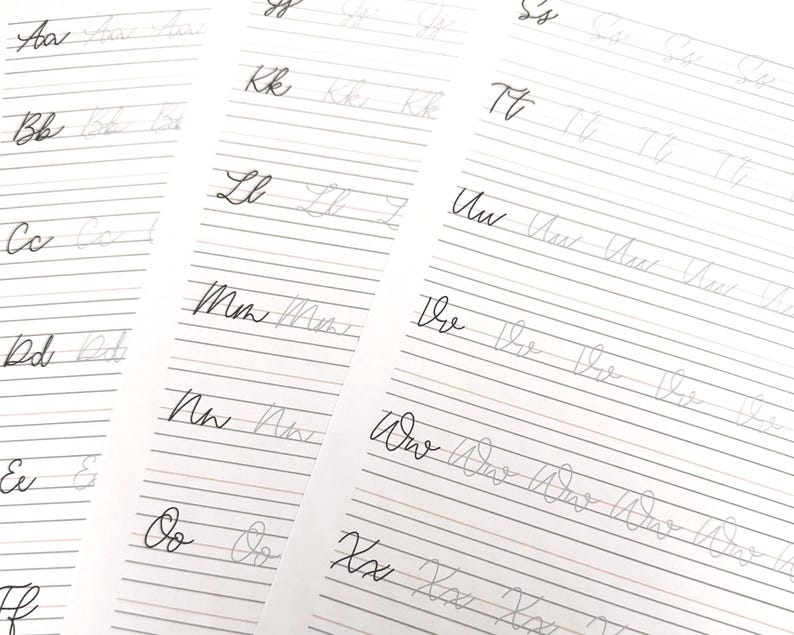 Aa Aa Aa
Bb Bb Bb
Cc Cc C
Dd Dd
Ee E
Ff
Jj Jj Jj
Kk Kk Kk
Ll Ll L
Mm Mm
Nn Nn
Oo Oo
Ss Ss Ss Ss
Tt Tt Tt Tt
Uu Uu Uu Uu Uu
Vv Vv Vv Vv Vv
Ww Ww Ww Ww Ww W
Xx Xx Xx X